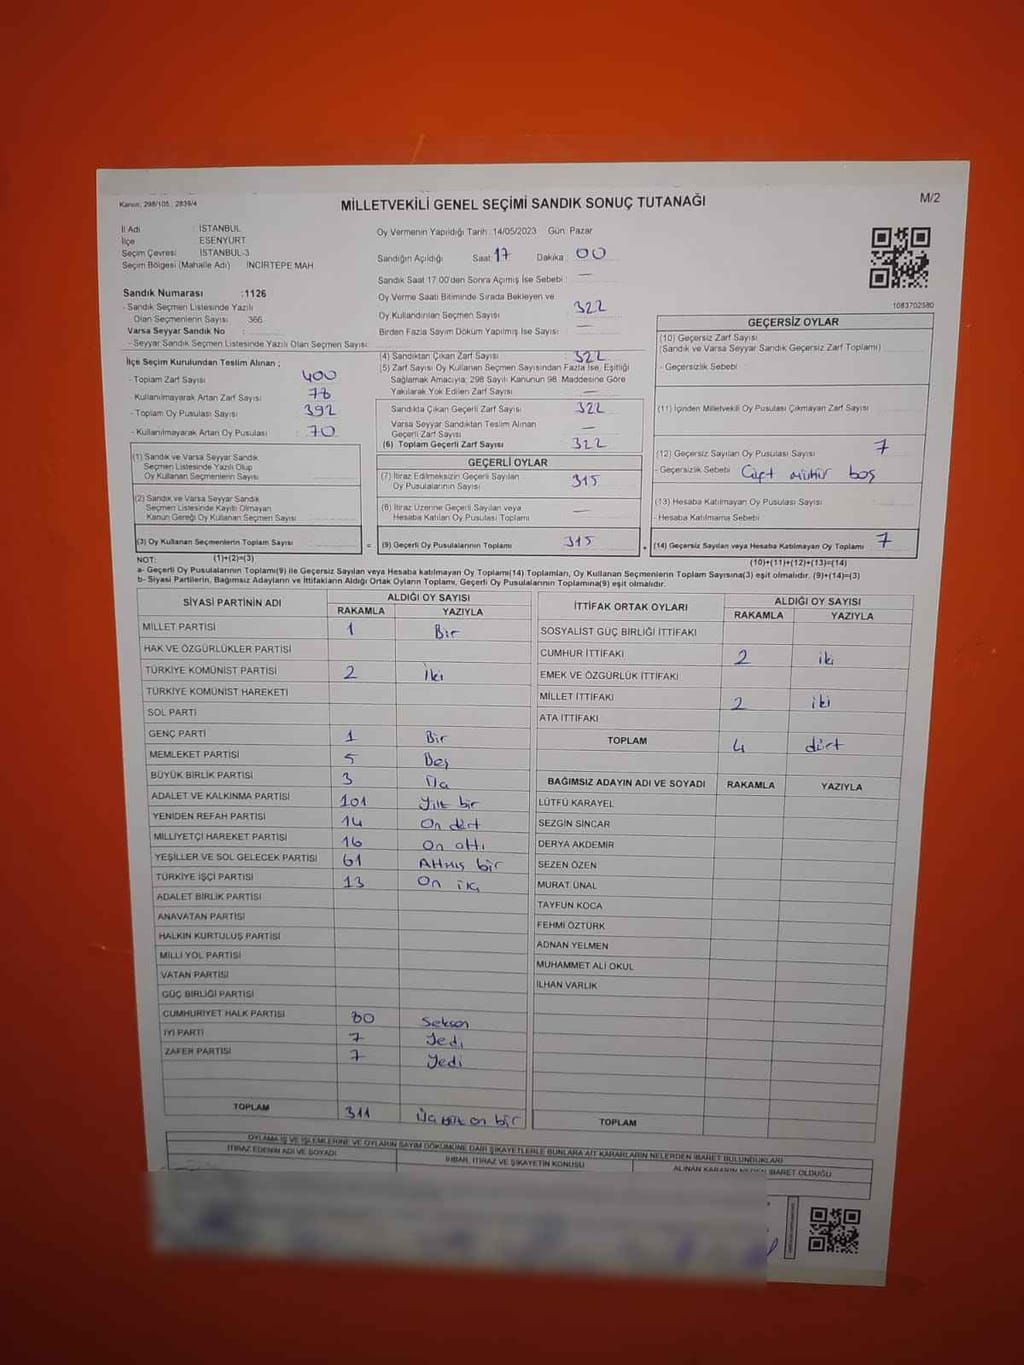 Kanun; 298/105, 2839/4
MİLLETVEKİLİ GENEL SEÇİMİ SANDIK SONUÇ TUTANAĞI
M/2
İl Adı : İSTANBUL
İlçe : ESENYURT
Seçim Çevresi : İSTANBUL-3
Seçim Bölgesi (Mahalle Adı) : İNCİRTEPE MAH
Sandık Numarası :1126
- Sandık Seçmen Listesinde Yazılı
Olan Seçmenlerin Sayısı : 366
Varsa Seyyar Sandık No :
- Seyyar Sandık Seçmen Listesinde Yazılı Olan Seçmen Sayısı:
Oy Vermenin Yapıldığı Tarih : 14/05/2023 Gün: Pazar
Sandığın Açıldığı Saat: 17 Dakika : 00
Sandık Saat 17:00'den Sonra Açımış İse Sebebi : —
Oy Verme Saati Bitiminde Sırada Bekleyen ve
Oy Kullandırılan Seçmen Sayısı : 322
Birden Fazla Sayım Döküm Yapılmış İse Sayısı : —
1083702580
İlçe Seçim Kurulundan Teslim Alınan ;
- Toplam Zarf Sayısı : 400
- Kullanılmayarak Artan Zarf Sayısı : 78
- Toplam Oy Pusulası Sayısı : 392
- Kullanılmayarak Artan Oy Pusulası : 70
(1) Sandık ve Varsa Seyyar Sandık
Seçmen Listesinde Yazılı Olup
Oy Kullanan Seçmenlerin Sayısı :
(2) Sandık ve Varsa Seyyar Sandık
Seçmen Listesinde Kayıtlı Olmayan
Kanun Gereği Oy Kullanan Seçmen Sayısı :
(3) Oy Kullanan Seçmenlerin Toplam Sayısı :
(1)+(2)=(3)
(4) Sandıktan Çıkan Zarf Sayısı : 322
(5) Zarf Sayısı Oy Kullanan Seçmen Sayısından Fazla İse, Eşitliği
Sağlamak Amacıyla; 298 Sayılı Kanunun 98. Maddesine Göre
Yakılarak Yok Edilen Zarf Sayısı : —
Sandıkta Çıkan Geçerli Zarf Sayısı : 322
Varsa Seyyar Sandıktan Teslim Alınan
Geçerli Zarf Sayısı : —
(6) Toplam Geçerli Zarf Sayısı : 322
GEÇERLİ OYLAR
(7) İtiraz Edilmeksizin Geçerli Sayılan
Oy Pusulalarının Sayısı : 315
(8) İtiraz Üzerine Geçerli Sayılan veya
Hesaba Katılan Oy Pusulası Toplamı : —
= (9) Geçerli Oy Pusulalarının Toplamı : 315
GEÇERSİZ OYLAR
(10) Geçersiz Zarf Sayısı
(Sandık ve Varsa Seyyar Sandık Geçersiz Zarf Toplamı) :
- Geçersizlik Sebebi :
(11) İçinden Milletvekili Oy Pusulası Çıkmayan Zarf Sayısı :
(12) Geçersiz Sayılan Oy Pusulası Sayısı : 7
- Geçersizlik Sebebi : Çift mühür boş
(13) Hesaba Katılmayan Oy Pusulası Sayısı :
- Hesaba Katılmama Sebebi :
+ (14) Geçersiz Sayılan veya Hesaba Katılmayan Oy Toplamı : 7
(10)+(11)+(12)+(13)=(14)
NOT:
a- Geçerli Oy Pusulalarının Toplamı(9) ile Geçersiz Sayılan veya Hesaba katılmayan Oy Toplamı(14) Toplamları, Oy Kullanan Seçmenlerin Toplam Sayısına(3) eşit olmalıdır. (9)+(14)=(3)
b- Siyasi Partilerin, Bağımsız Adayların ve İttifakların Aldığı Ortak Oyların Toplamı, Geçerli Oy Pusulalarının Toplamına(9) eşit olmalıdır.
SİYASİ PARTİNİN ADI ALDIĞI OY SAYISI
RAKAMLA YAZIYLA
MİLLET PARTİSİ 1 Bir
HAK VE ÖZGÜRLÜKLER PARTİSİ
TÜRKİYE KOMÜNİST PARTİSİ 2 İki
TÜRKİYE KOMÜNİST HAREKETİ
SOL PARTİ
GENÇ PARTİ 1 Bir
MEMLEKET PARTİSİ 5 Beş
BÜYÜK BİRLİK PARTİSİ 3
ADALET VE KALKINMA PARTİSİ 101 bir
YENİDEN REFAH PARTİSİ 14 On dört
MİLLİYETÇİ HAREKET PARTİSİ 16 On altı
YEŞİLLER VE SOL GELECEK PARTİSİ 61 Atmış bir
TÜRKİYE İŞÇİ PARTİSİ 13 On
ADALET BİRLİK PARTİSİ
ANAVATAN PARTİSİ
HALKIN KURTULUŞ PARTİSİ
MİLLİ YOL PARTİSİ
VATAN PARTİSİ
GÜÇ BİRLİĞİ PARTİSİ
CUMHURİYET HALK PARTİSİ 80 Seksen
İYİ PARTİ 7 Yedi
ZAFER PARTİSİ 7 Yedi
TOPLAM 311 Üçyüz on bir
İTTİFAK ORTAK OYLARI ALDIĞI OY SAYISI
RAKAMLA YAZIYLA
SOSYALİST GÜÇ BİRLİĞİ İTTİFAKI
CUMHUR İTTİFAKI 2 iki
EMEK VE ÖZGÜRLÜK İTTİFAKI
MİLLET İTTİFAKI 2 iki
ATA İTTİFAKI
TOPLAM 4 dört
BAĞIMSIZ ADAYIN ADI VE SOYADI RAKAMLA YAZIYLA
LÜTFÜ KARAYEL
SEZGİN SİNCAR
DERYA AKDEMİR
SEZEN ÖZEN
MURAT ÜNAL
TAYFUN KOCA
FEHMİ ÖZTÜRK
ADNAN YELMEN
MUHAMMET ALİ OKUL
İLHAN VARLIK
TOPLAM
OYLAMA İŞ VE İŞLEMLERİNE VE OYLARIN SAYIM DÖKÜMÜNE DAİR ŞİKAYETLERLE BUNLARA AİT KARARLARIN NELERDEN İBARET BULUNDUKLARI
İTİRAZ EDENİN ADI VE SOYADI İHBAR, İTİRAZ VE ŞİKAYETİN KONUSU ALINAN KARARIN NEDEN İBARET OLDUĞU